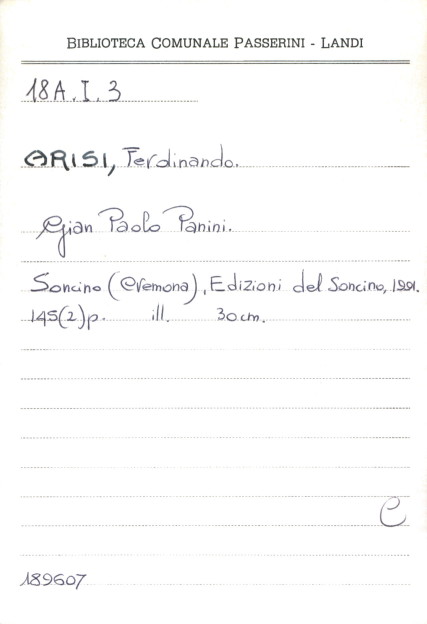 BIBLIOTECA COMUNALE PASSERINI - LANDI
18A.I.3
ARISI, Ferdinando.
Gian Paolo Panini.
Soncino (Cremona), Edizioni del Soncino, 1991.
145(2)p. ill. 30cm.
C
189607